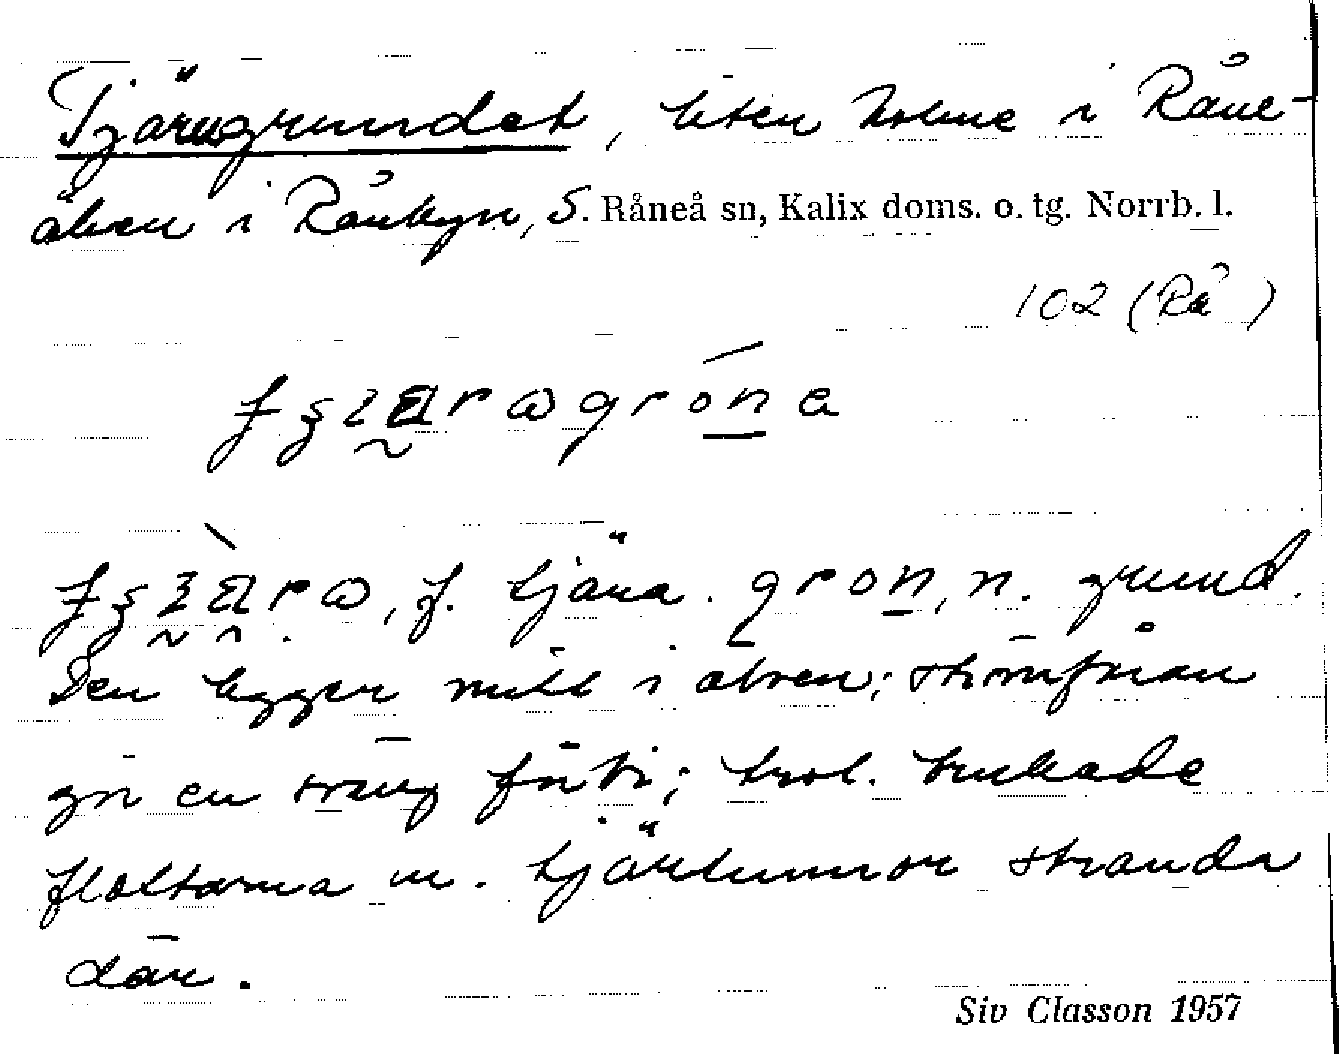 Tjärugrundet, liten holme i Råne-
älven i Rånbyn, S. Råneå sn, Kalix doms. o. tg. Norrb. l.
102 (Rå )
f. tjära. n. grund.
Den ligger mitt i älven; strömfåran
gör en sväng förbi; trol. brukade
flottarna m. tjärtunnor stranda
där.
Siv Classon 1957